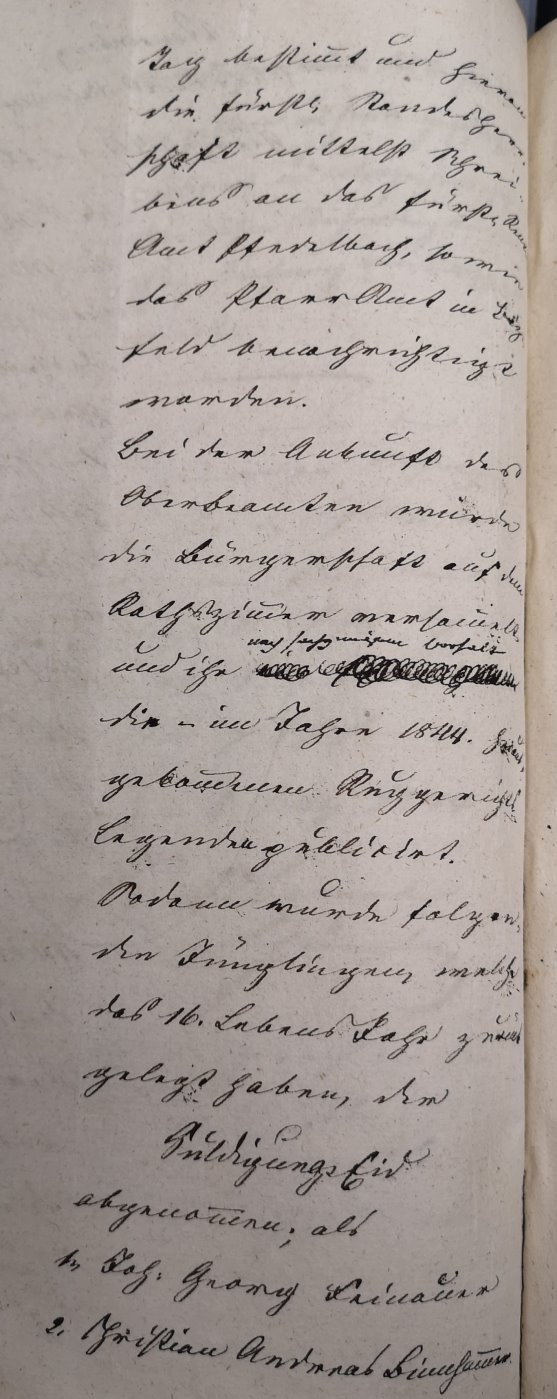 Tag bestimt und hievon
die fürstl. Standesherr-
schaft mittelst Schrei-
bens an das fürstl. Rent
Amt Pfedelbach, sowie
das PfarrAmt in
feld benachrichtigt
worden.
Bei der Ankunft des
Oberbeamten wurde
die Bürgerschaft auf dem
Rathszimer versamelt
nach
und ihr
die – im Jahre 1844.
gekomenen Ruggerichts
Legenden publicirt.
Sodann wurde folgen-
den Jünglingen, welche
das 16. Lebens Jahr zurück
gelegt haben, der
Huldigungs Eid
abgenomen; als
1, Joh: Georg Feinauer
2. Christian Andreas